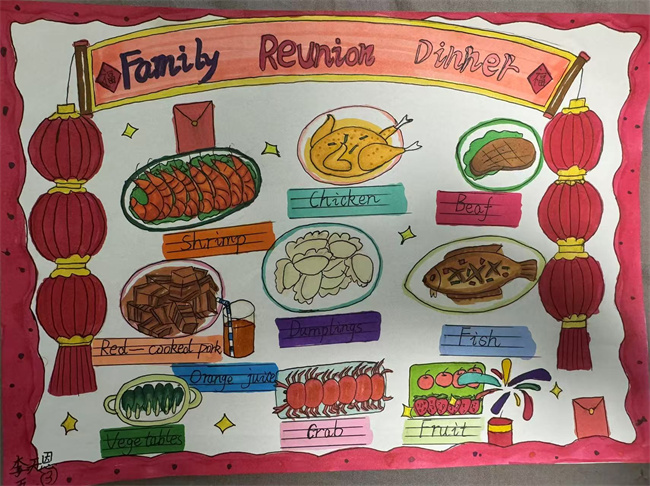 Family Reunion Dinner
福 福
Chicken
Beaf
Shrimp
Dumplings
Fish
Red-cooked pork
Orange juice
Vegetables
Crab
Fruit